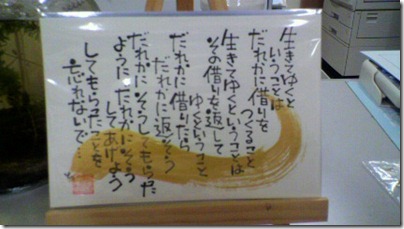 生きてゆくと
いうことは
だれかに借りを
つくること
生きてゆくということは
その借りを返して
ゆくということ
だれかに借りたら
だれかに返そう
だれかにそうしてもらった
ように だれかにそう
してあげよう
してもらったことを、
忘れないで…